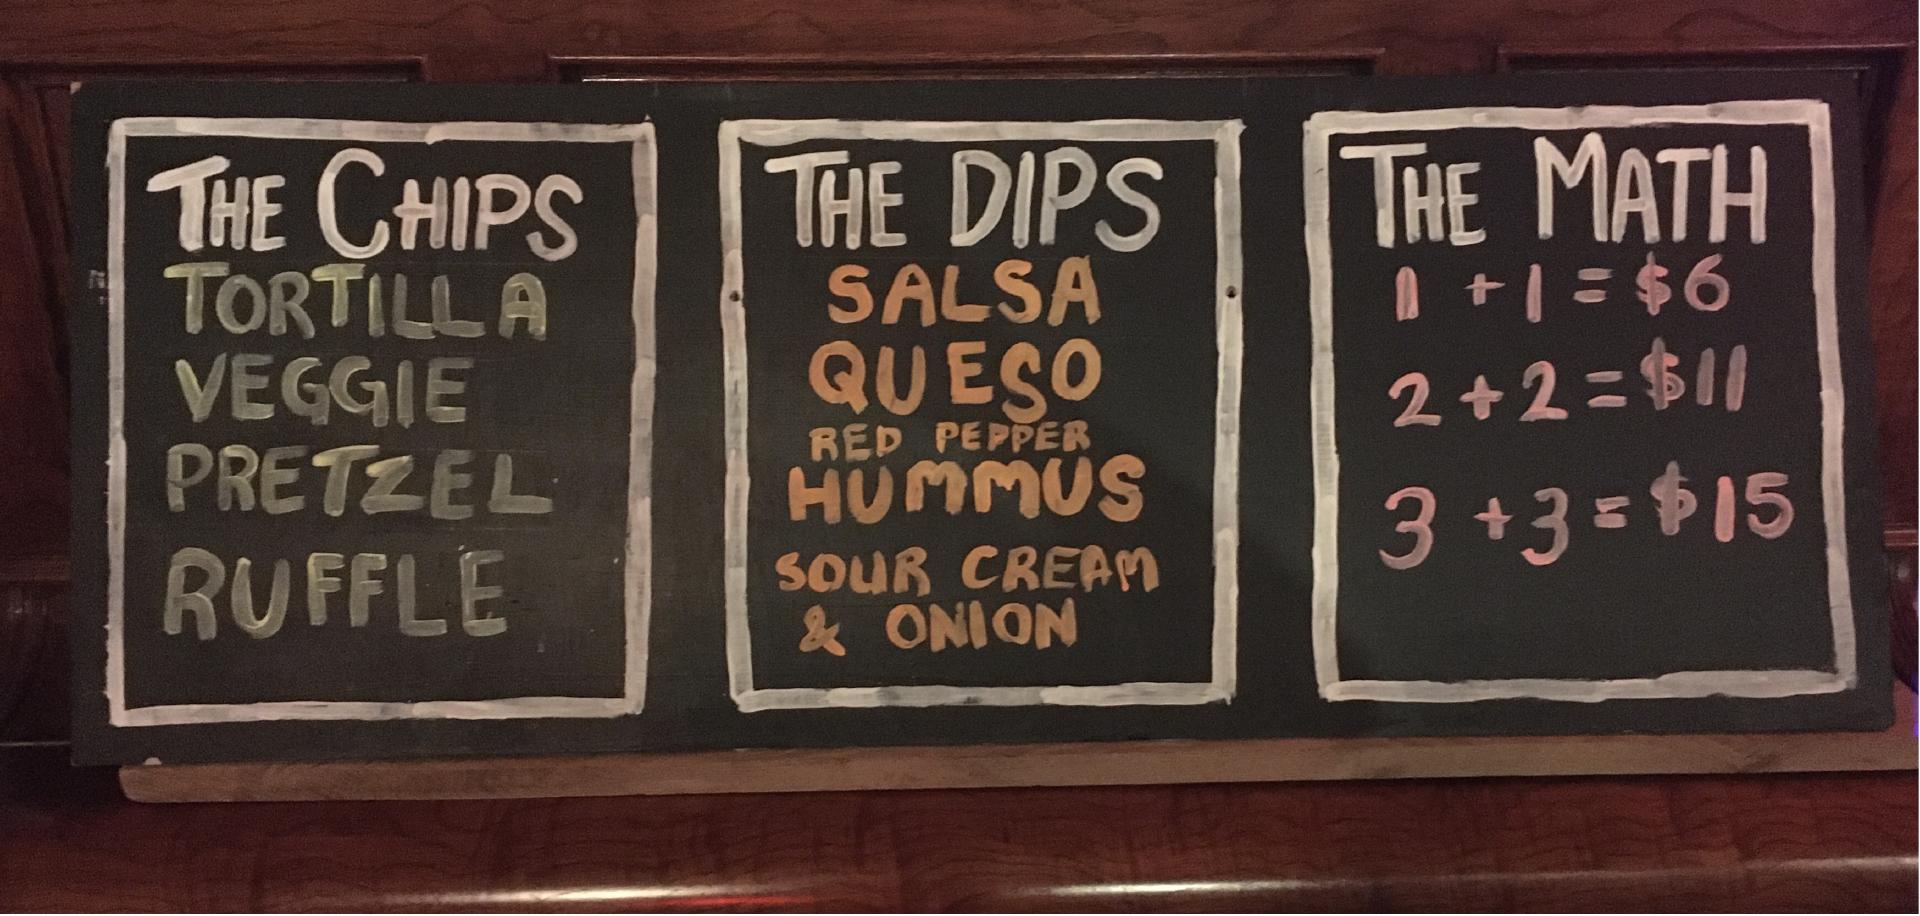 THE CHIPS
TORTILLA
VEGGIE
PRETZEL
RUFFLE
THE DIPS
SALSA
QUESO
RED PEPPER
HUMMUS
SOUR CREAM
& ONION
THE MATH
1 + 1 = $6
2 + 2 = $11
3 + 3 = $15